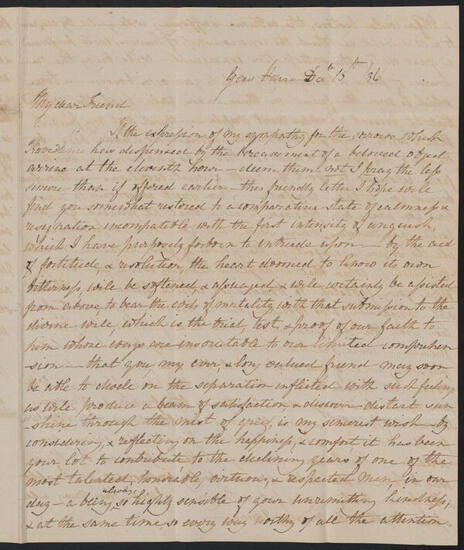 New Haven Dec 15th /36
My dear Friend
If the expression of my sympathy for the sorrow which
Providence has dispensed by the bereavement of a beloved object
arrive at the eleventh hour – deem them not I pray the less
sincere than if offered earlier – this friendly letter I hope will
find you somewhat restored to a comparative state of calmness &
resignation incompatible with the first intensity of anguish,
which I have purposely forborn to intrude upon – by the aid
of fortitude, & resolution, the heart doomed to know its own
bitterness will be softened, & assuaged & will certainly be assisted
from above to bear the evils of mortality with that submission to the
divine will, which is the trial, test, & proof of our faith to
him whose ways are inscrutable to our limited comprehen
sion – that you my ever, & long valued friend may soon
be able to dwell on the separation inflicted with such feelings
as will produce a beam of satisfaction, & discover distant sun
-shine through the mist of grief, is my sincerest wish – by
considering, & reflecting on the happiness, & comfort it has been
your lot to contribute to the declining years of one of the
most talented, honorable, virtuous, & respected men in our
day – a being always so highly sensible of your unremitting kindness,
& at the same time so every way worthy of all the attention